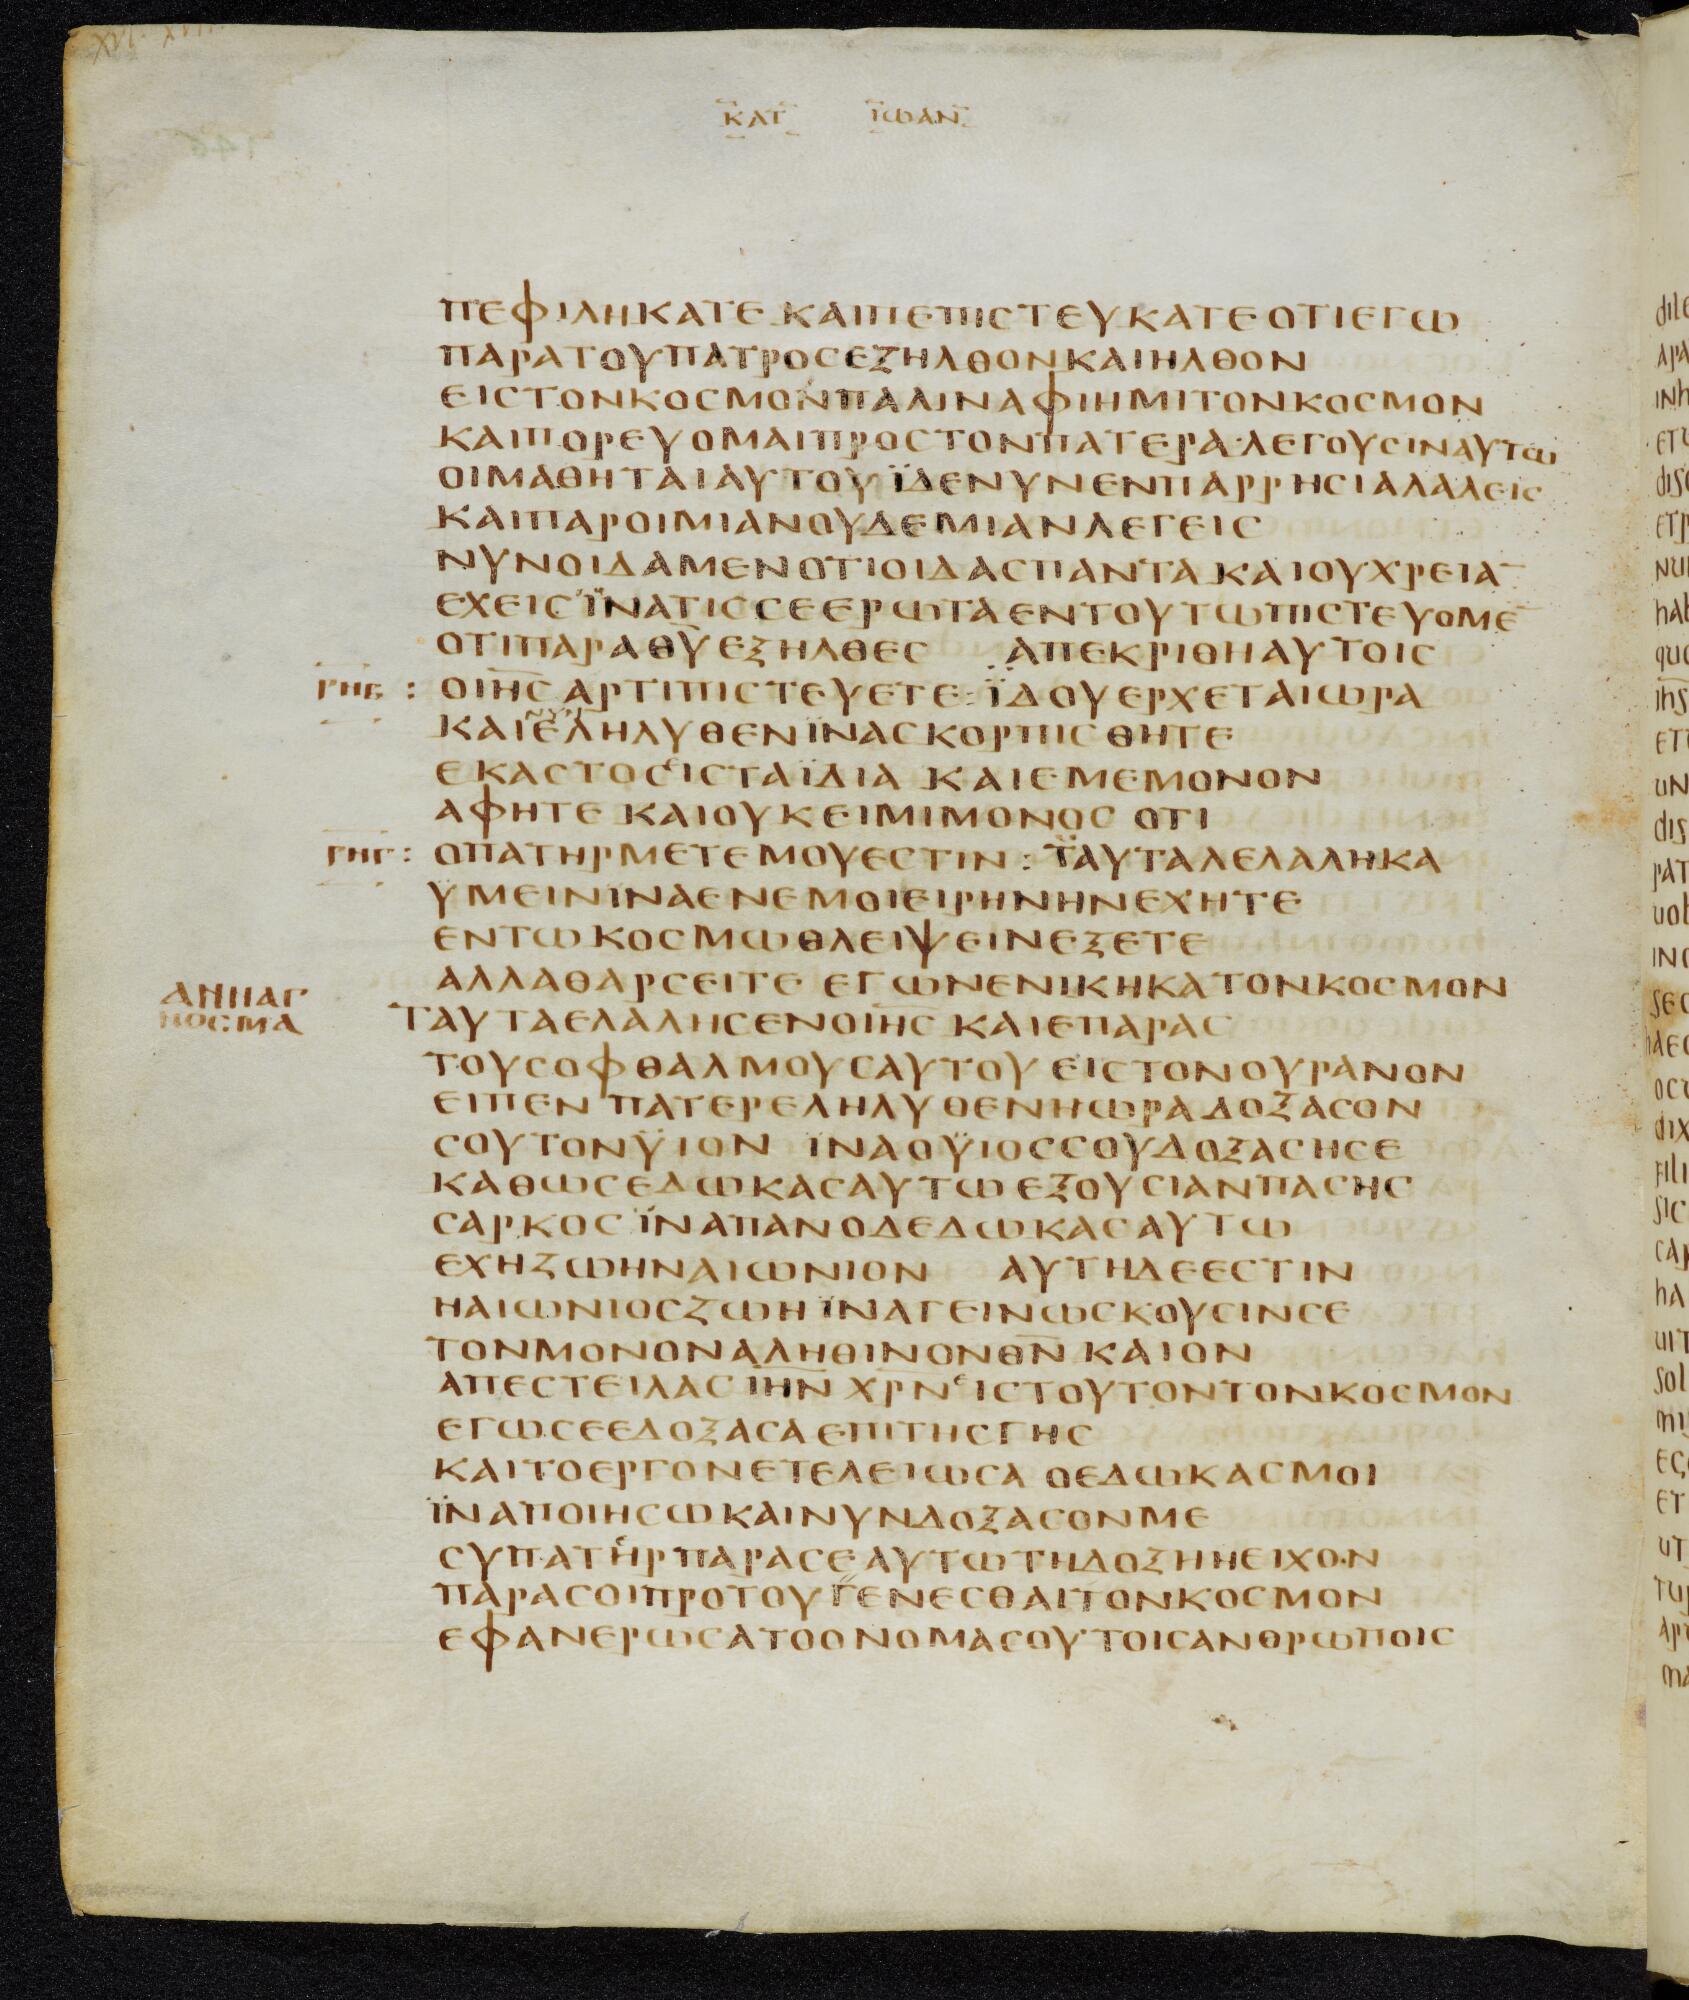 ΚΑΤ ΙΩΑΝ
ΠΕΦΙΛΗΚΑΤΕ ΚΑΙΠΕΠΙΣΤΕΥΚΑΤΕ ΟΤΙΕΓΩ
ΠΑΡΑΤΟΥΠΑΤΡΟΣΕΞΗΛΘΟΝΚΑΙΗΛΘΟΝ
ΕΙΣΤΟΝΚΟΣΜΟΝΠΑΛΙΝΑΦΙΗΜΙΤΟΝΚΟΣΜΟΝ
ΚΑΙΠΟΡΕΥΟΜΑΙΠΡΟΣΤΟΝΠΑΤΕΡΑ·ΛΕΓΟΥΣΙΝΑΥΤΩ
ΟΙΜΑΘΗΤΑΙΑΥΤΟΥ ΪΔΕΝΥΝΕΝΠΑΡΡΗΣΙΑΛΑΛΕΙΣ
ΚΑΙΠΑΡΟΙΜΙΑΝΟΥΔΕΜΙΑΝΛΕΓΕΙΣ
ΝΥΝΟΙΔΑΜΕΝΟΤΙΟΙΔΑΣΠΑΝΤΑ ΚΑΙΟΥΧΡΕΙΑ̅
ΕΧΕΙΣΪΝΑΤΙΣΣΕΕΡΩΤΑΕΝΤΟΥΤΩΠΙΣΤΕΥΟΜΕ̅
ΟΤΙΠΑΡΑΘ̅Υ̅ΕΞΗΛΘΕΣ ΑΠΕΚΡΙΘΗΑΥΤΟΙΣ
ΡΗΕ : ΟΙ̅Η̅Σ̅ ΑΡΤΙΠΙΣΤΕΥΕΤΕ:ΪΔΟΥΕΡΧΕΤΑΙΩΡΑ
ΝΥΝ
ΚΑΙΕΛΗΛΥΘΕΝΪΝΑΣΚΟΡΠΙΣΘΗΤΕ
ΕΚΑΣΤΟΣΕΙΣΤΑΪΔΙΑ ΚΑΙΕΜΕΜΟΝΟΝ
ΑΦΗΤΕ ΚΑΙΟΥΚΕΙΜΙΜΟΝΟΣ ΟΤΙ
ΓΗΓ : ΟΠΑΤΗΡΜΕΤΕΜΟΥΕΣΤΙΝ : ΤΑΥΤΑΛΕΛΑΛΗΚΑ
ΫΜΕΙΝΪΝΑΕΝΕΜΟΙΕΙΡΗΝΗΝΕΧΗΤΕ
ΕΝΤΩΚΟΣΜΩΘΛΕΙΨΕΙΝΕΞΕΤΕ
ΑΛΛΑΘΑΡΣΕΙΤΕ ΕΓΩΝΕΝΙΚΗΚΑΤΟΝΚΟΣΜΟΝ
ΑΝΝΑΓ
ΝΟΣΜΑ
ΤΑΥΤΑΕΛΑΛΗΣΕΝΟΙ̅Η̅Σ̅ ΚΑΙΕΠΑΡΑΣ
ΤΟΥΣΟΦΘΑΛΜΟΥΣΑΥΤΟΥ ΕΙΣΤΟΝΟΥΡΑΝΟΝ
ΕΙΠΕΝ ΠΑΤΕΡΕΛΗΛΥΘΕΝΗΩΡΑ ΔΟΞΑΣΟΝ
ΣΟΥΤΟΝΫΙΟΝ ΪΝΑΟΫΙΟΣΣΟΥΔΟΞΑΣΗΣΕ
ΚΑΘΩΣΕΔΩΚΑΣΑΥΤΩΕΞΟΥΣΙΑΝΠΑΣΗΣ
ΣΑΡΚΟΣ ΪΝΑΠΑΝΟΔΕΔΩΚΑΣΑΥΤΩ
ΕΧΗΖΩΗΝΑΙΩΝΙΟΝ ΑΥΤΗΔΕΕΣΤΙΝ
ΗΑΙΩΝΙΟΣΖΩΗ ΪΝΑΓΕΙΝΩΣΚΟΥΣΙΝΣΕ
ΤΟΝΜΟΝΟΝΑΛΗΘΙΝΟΝΘ̅Ν̅ ΚΑΙΟΝ
ΑΠΕΣΤΕΙΛΑΣ Ι̅Η̅Ν̅ Χ̅Ρ̅Ν̅ΕΙΣΤΟΥΤΟΝΤΟΝΚΟΣΜΟΝ
ΕΓΩΣΕΕΔΟΞΑΣΑΕΠΙΤΗΣΓΗΣ
ΚΑΙΤΟΕΡΓΟΝΕΤΕΛΕΙΩΣΑ ΟΕΔΩΚΑΣΜΟΙ
ΪΝΑΠΟΙΗΣΩΚΑΙΝΥΝΔΟΞΑΣΟΝΜΕ
ΣΥΠΑΤΗΡΠΑΡΑΣΕΑΥΤΩΤΗΔΟΞΗΗΕΙΧΟΝ
ΠΑΡΑΣΟΙΠΡΟΤΟΥΓΕΝΕΣΘΑΙΤΟΝΚΟΣΜΟΝ
ΕΦΑΝΕΡΩΣΑΤΟΟΝΟΜΑΣΟΥΤΟΙΣΑΝΘΡΩΠΟΙΣ